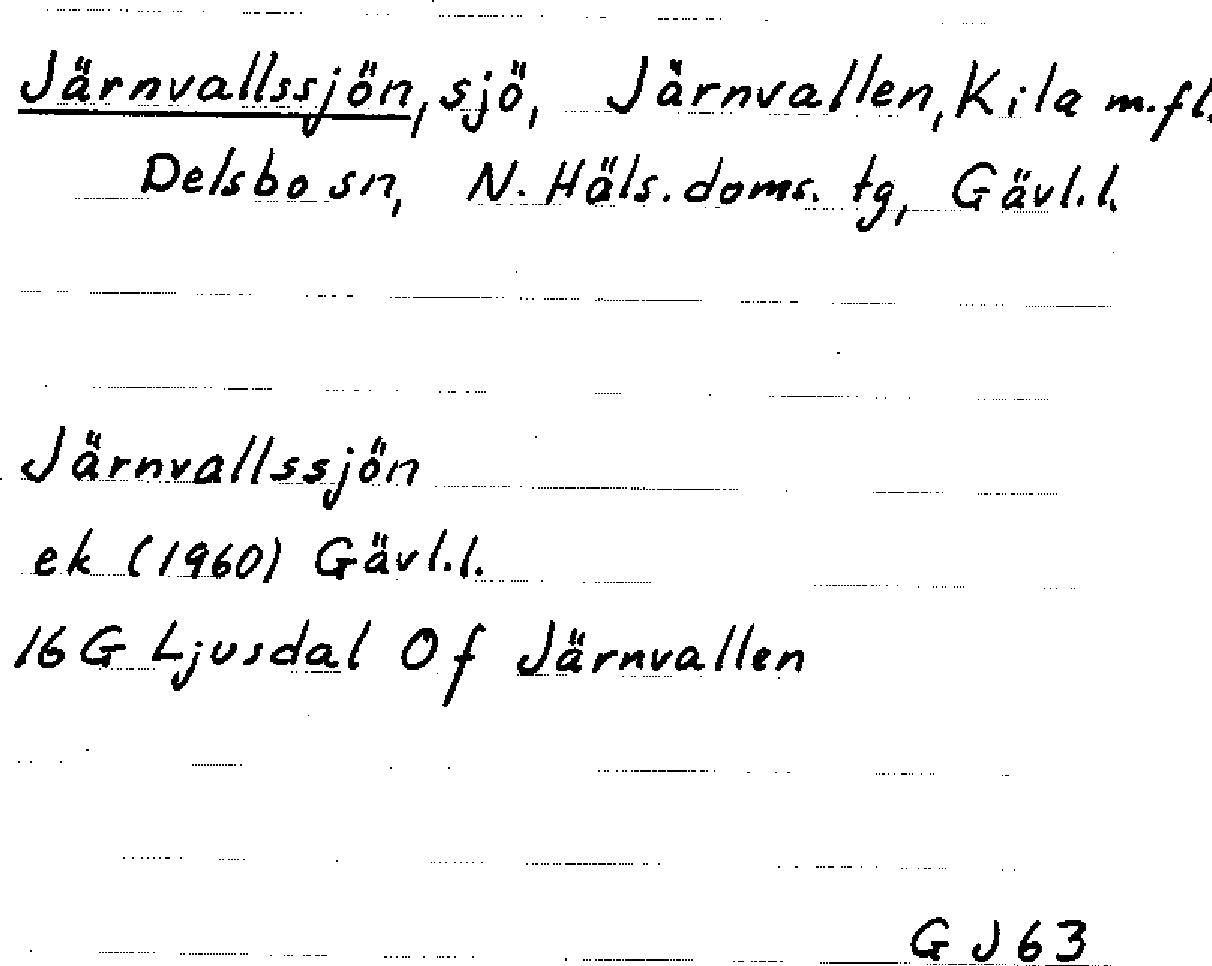 Järnvallssjön, sjö, Järnvallen, Kila m.fl.
Delsbo sn, N. Häls. doms. tg, Gävl.l.
Järnvallssjön
ek (1960) Gävl.l.
16G Ljusdal 0f Järnvallen
GJ63